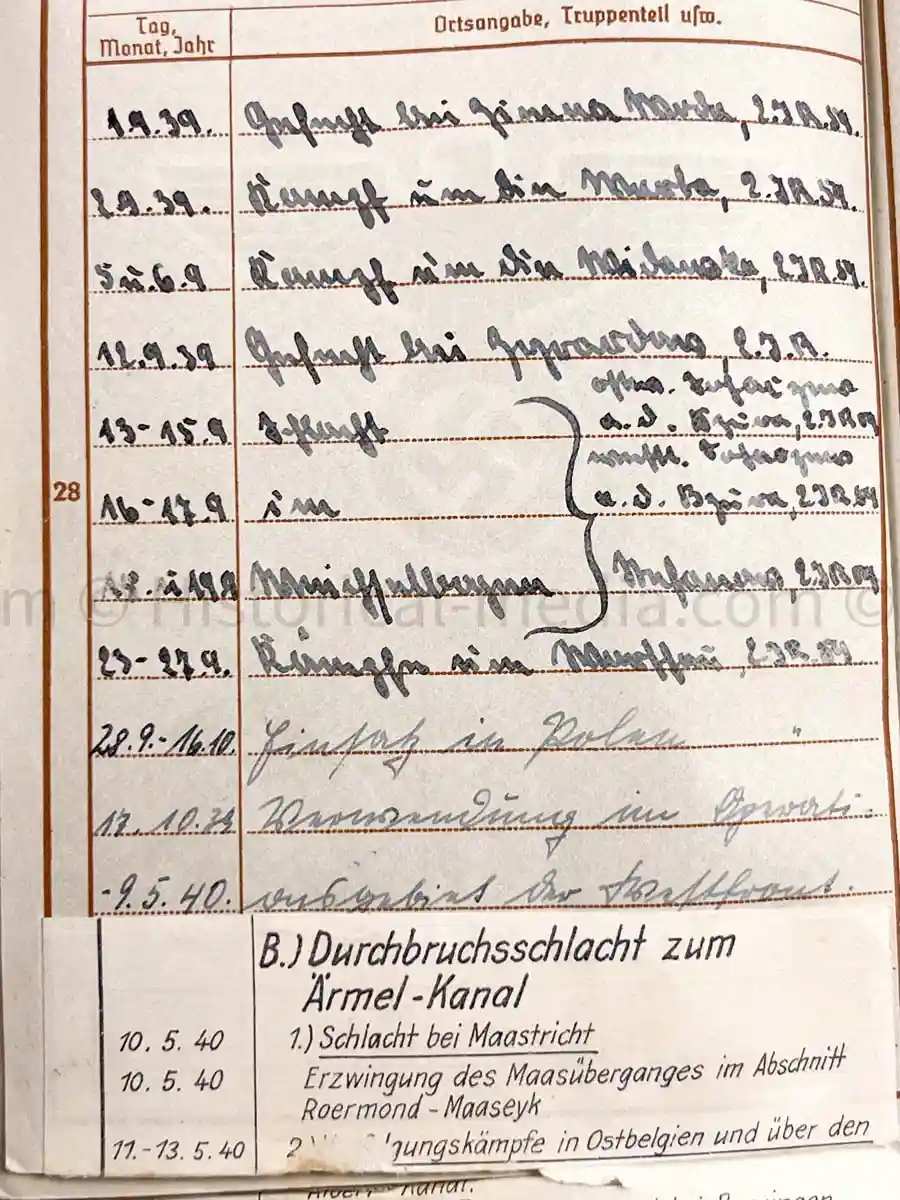 Tag, Monat, Jahr
Ortsangabe, Truppenteil usw.
1.9.39. Gefecht bei Zimna Woda, 2.J.R.54.
2.9.39. Kampf um die Warta, 2.J.R.54.
5.u.6.9 Kampf um die Widawka, 2.J.R.54.
12.9.39 Gefecht bei Zyrardow, 2.J.R.
13-15.9 Schlacht
a.d. Bzura, 2.J.R.54
28
16-17.9 im
a.d. Bzura, 2.J.R.54
18.u.19.9 Weichselbogen 2.J.R.54
23-27.9. Kämpfe um Warschau, 2.J.R.54.
28.9.-16.10. Einsatz in Polen "
17.10.39 Verwendung im Operati-
-9.5.40. onsgebiet der Westfront.
B.) Durchbruchsschlacht zum
Ärmel-Kanal
10.5.40 1.) Schlacht bei Maastricht
10.5.40 Erzwingung des Maasüberganges im Abschnitt
Roermond - Maaseyk
11.-13.5.40 gungskämpfe in Ostbelgien und über den
Historical-media.com ©